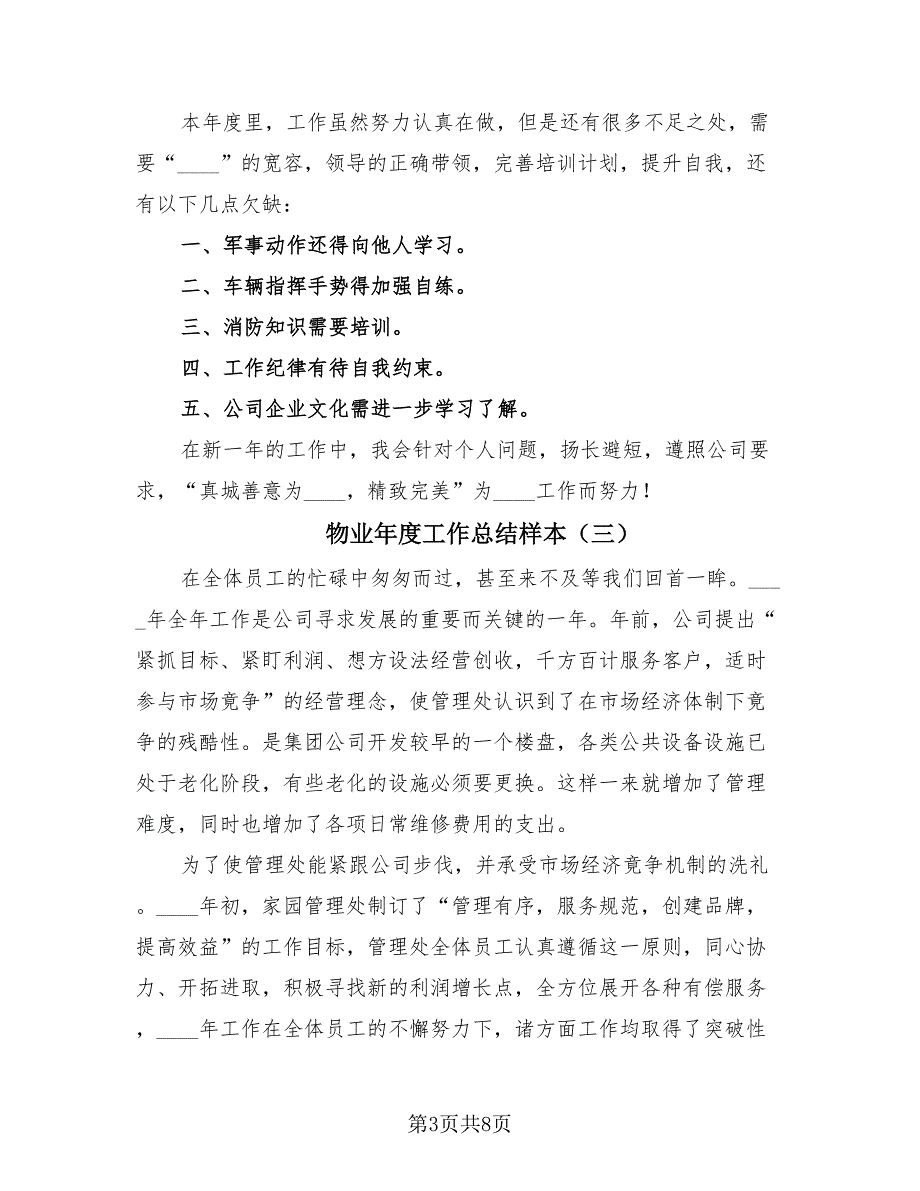 本年度里，工作虽然努力认真在做，但是还有很多不足之处，需
要“____”的宽容，领导的正确带领，完善培训计划，提升自我，还
有以下几点欠缺：
一、军事动作还得向他人学习。
二、车辆指挥手势得加强自练。
三、消防知识需要培训。
四、工作纪律有待自我约束。
五、公司企业文化需进一步学习了解。
在新一年的工作中，我会针对个人问题，扬长避短，遵照公司要
求，“真城善意为____，精致完美”为____工作而努力！
物业年度工作总结样本（三）
在全体员工的忙碌中匆匆而过，甚至来不及等我们回首一眸。___
_年全年工作是公司寻求发展的重要而关键的一年。年前，公司提出“
紧抓目标、紧盯利润、想方设法经营创收，千方百计服务客户，适时
参与市场竟争”的经营理念，使管理处认识到了在市场经济体制下竟
争的残酷性。是集团公司开发较早的一个楼盘，各类公共设备设施已
处于老化阶段，有些老化的设施必须要更换。这样一来就增加了管理
难度，同时也增加了各项日常维修费用的支出。
为了使管理处能紧跟公司步伐，并承受市场经济竟争机制的洗礼
。____年初，家园管理处制订了“管理有序，服务规范，创建品牌，
提高效益”的工作目标，管理处全体员工认真遵循这一原则，同心协
力、开拓进取，积极寻找新的利润增长点，全方位展开各种有偿服务
，____年工作在全体员工的不懈努力下，诸方面工作均取得了突破性
第3页共8页